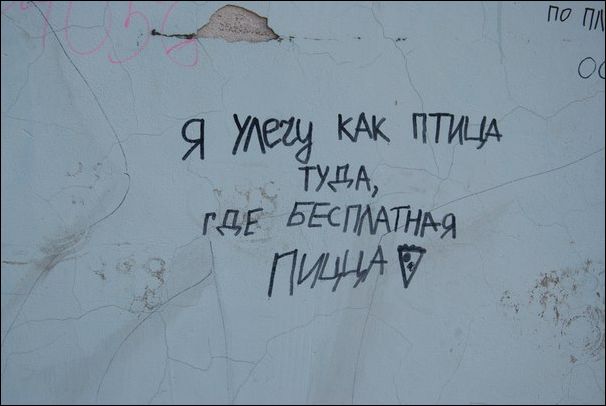 Я улечу как птица
туда,
где бесплатная
пицца
по